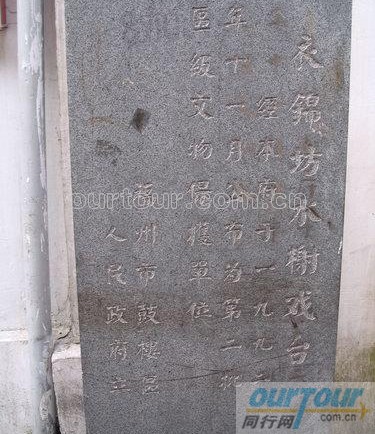 衣錦坊水榭戏台
经本府于一九九二
年十一月公布为第二批
区级文物保護單位
福州市鼓樓区
人民政府立
ourtour.com.cn
OURTOUR
同行网
.com